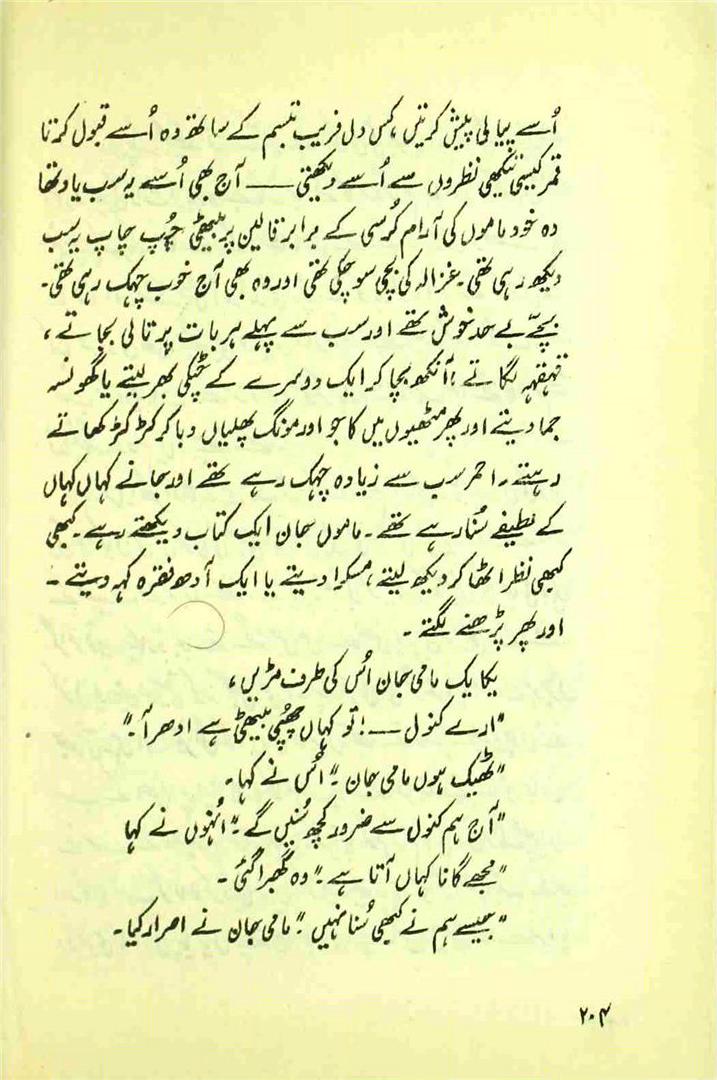 اُسے پیالی پیش کرتیں، کس دل فریب تبسم کے ساتھ وہ اُسے قبول کرتا
قمر کیسی تیکھی نظروں سے اُسے دیکھتی —— آج بھی اُسے یہ سب یاد تھا
وہ خود ماموں کی آرام کُرسی کے برابر قالین پر بیٹھی چُپ چاپ یہ سب
دیکھ رہی تھی۔ غزالہ کی بچی سوچکی تھی اور وہ بھی آج خوب چہک رہی تھی۔
بچّے بے حد خوش تھے اور سب سے پہلے ہر بات پر تالی بجاتے،
قہقہہ لگاتے، آنکھ بچا کر ایک دوسرے کے چٹکی بھر لیتے یا گھونسہ
جما دیتے اور پھر مٹھیوں میں کاجو اور مونگ پھلیاں دبا کر کڑ کڑ کھاتے
رہتے۔ احمر سب سے زیادہ چہک رہے تھے اور جانے کہاں کہاں
کے لطیفے سُنا رہے تھے۔ ماموں جان ایک کتاب دیکھتے رہے۔ کبھی
کبھی نظر اٹھا کر دیکھ لیتے، مسکرا دیتے یا ایک آدھ فقرہ کہہ دیتے ۔
اور پھر پڑھنے لگتے ۔
یکا یک مامی جان اُس کی طرف مڑیں،
"ارے کنول ——! تو کہاں چھُپی بیٹھی ہے ادھر آ۔"
"ٹھیک ہوں مامی جان۔" اُس نے کہا۔
"آج ہم کنول سے ضرور کچھ سُنیں گے۔" اُنہوں نے کہا
"مجھے گانا کہاں آتا ہے۔" وہ گھبرا گئی ۔
"جیسے ہم نے کبھی سُنا نہیں۔" مامی جان نے اصرار کیا۔
۲۰۴